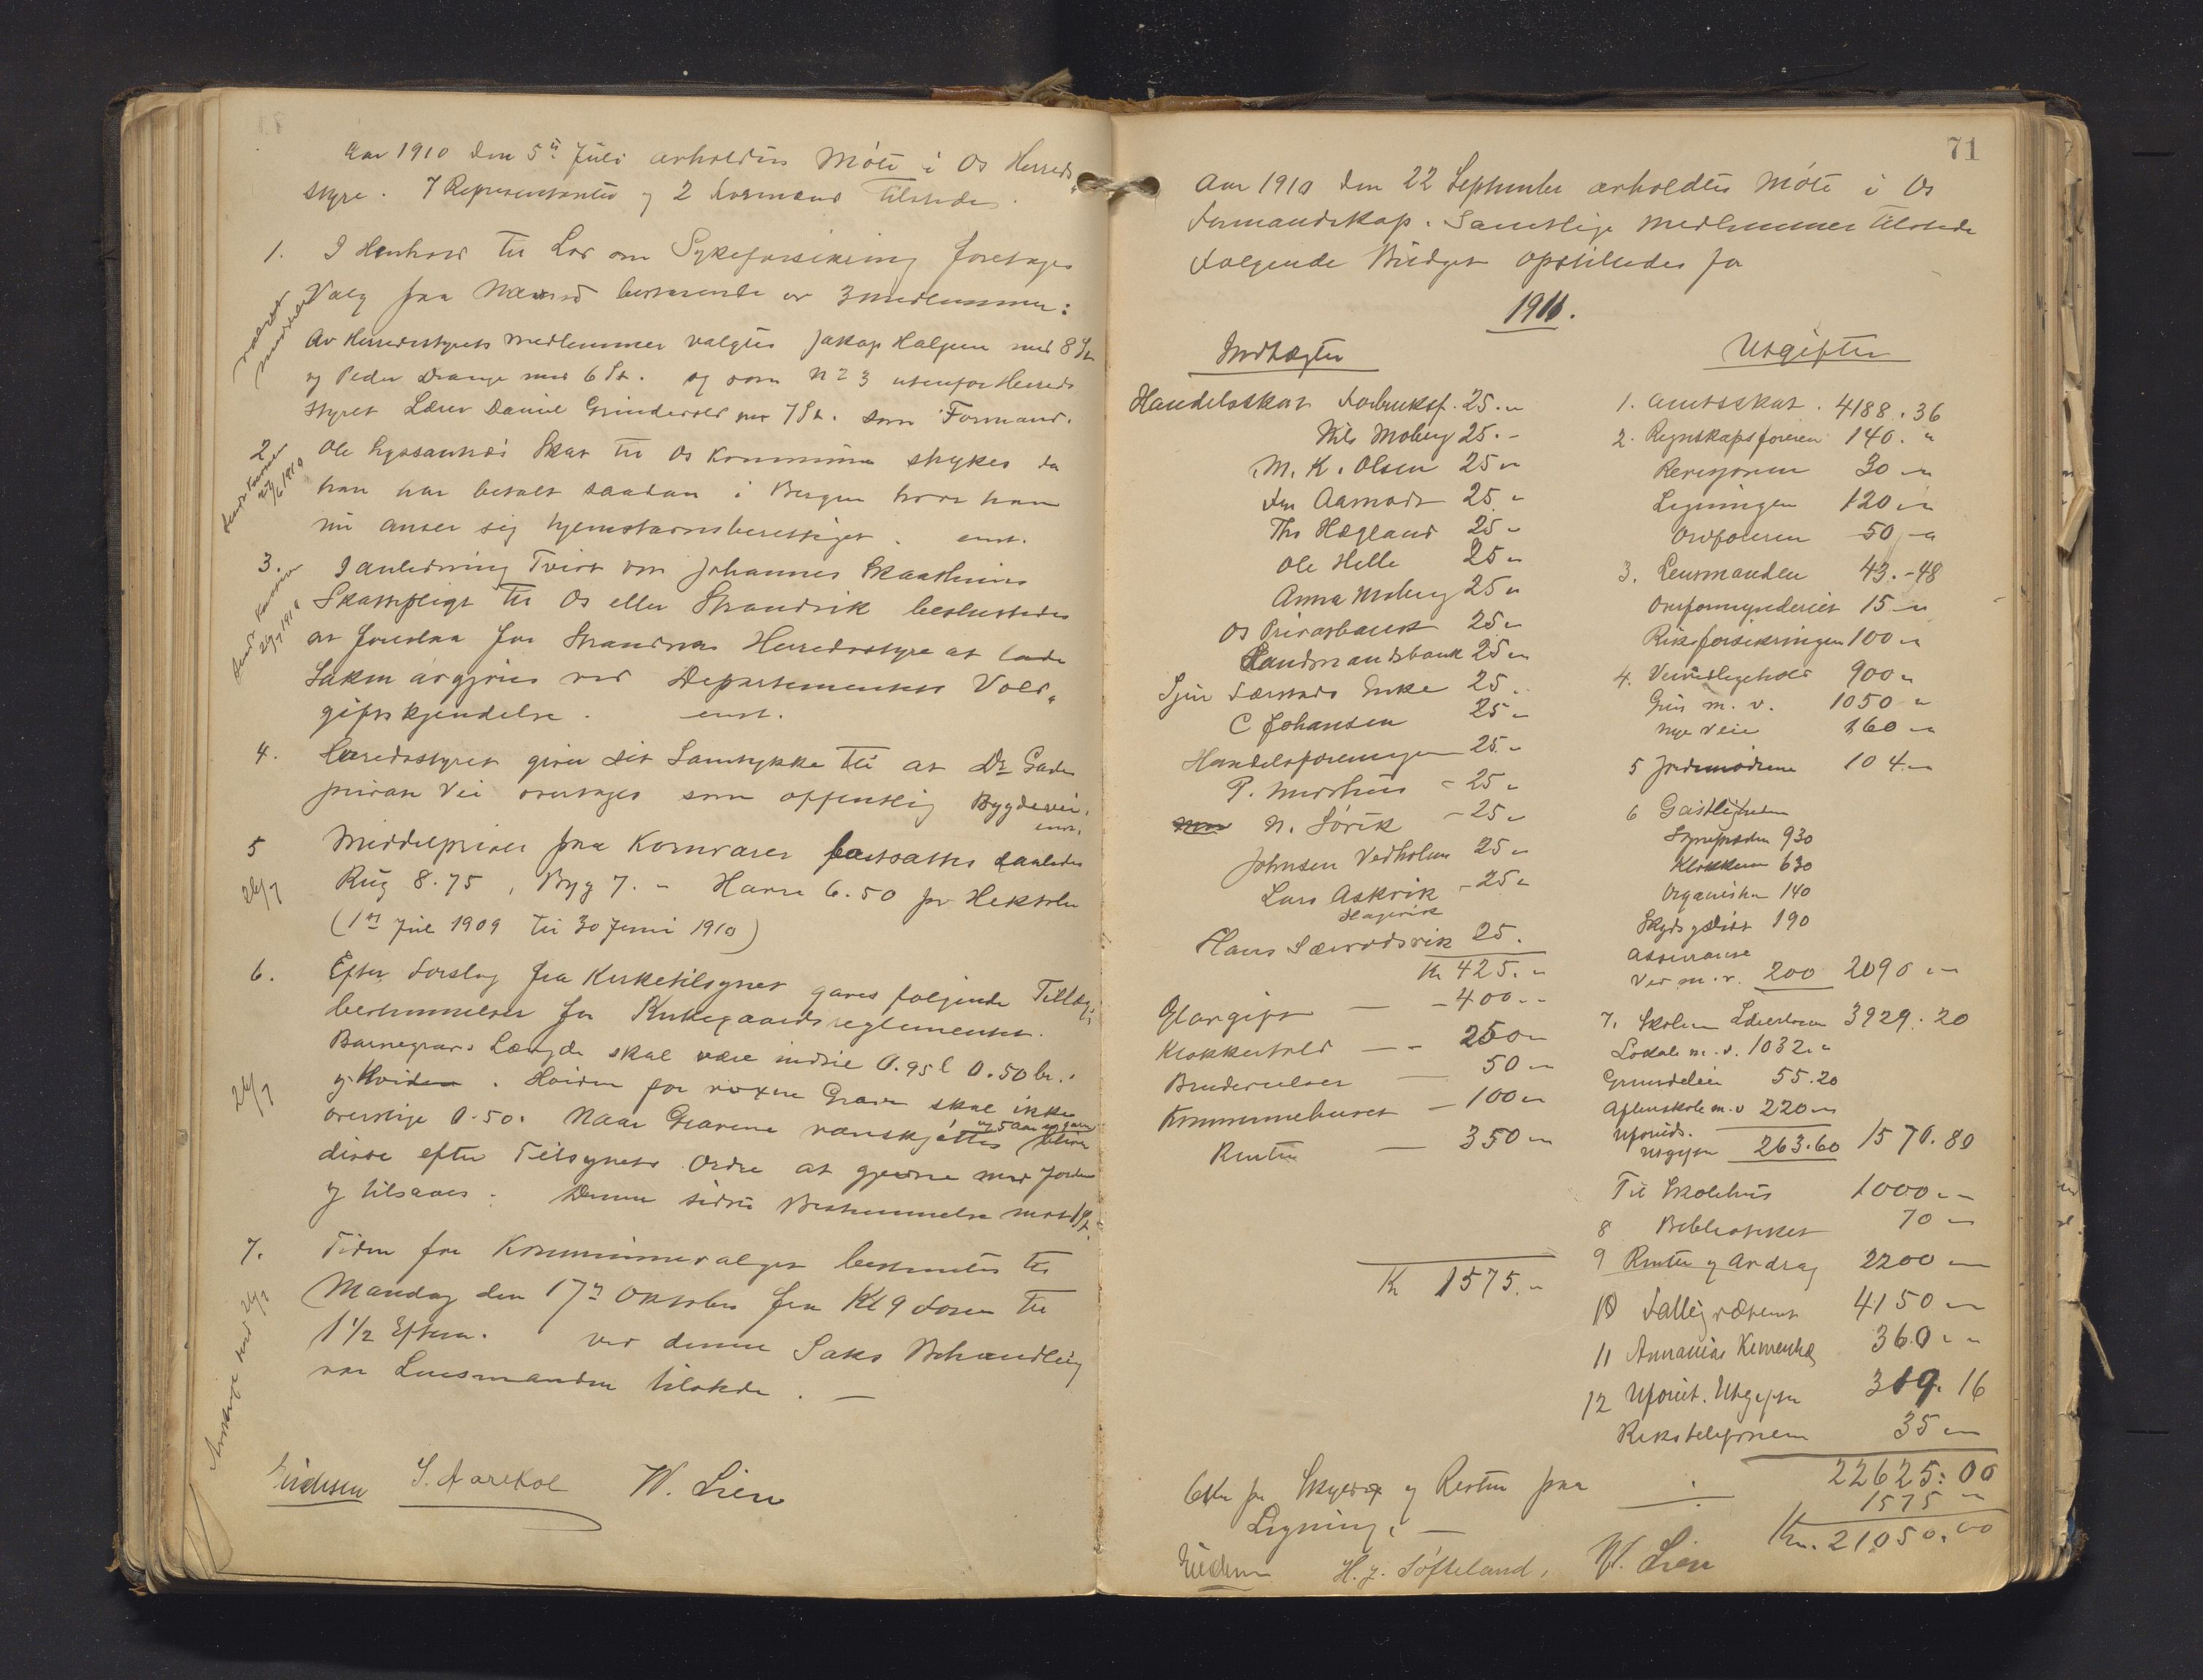 Aar 1910 den 5te Juli avholdtes Møte i Os Herreds-
styre. 7 Representanter og 2 Formænd tilstede.
1. I Henhold til Lov om Sykeforsikring foretages
Valg paa Nævnd bestaaende av 3 medlemmer:
Av Herredsstyrets medlemmer valgtes Jakop Halgun med 8 St
og Peder Drange med 6 St. og som No 3 utenfor Herreds
styret Lærer Daniel Grindevold med 7 St. som Formand.
2 Ole Lyssands Skat til Os Kommune strykes da
han har betalt saadan i Bergen hvor han
nu anser sig hjemstavnsberettiget. enst.
3. I anledning Tvist om Johannes Skaathuns
Skattepligt til Os eller Strandvik besluttedes
at foreslaa for Strandviks Herredsstyre at lade
Saken avgjøres ved Departementets Vold-
giftskjendelse. enst.
4. Herredsstyret giver sit Samtykke til at Dr Gades
private Vei overtages som offentlig Bygdevei.
enst.
5 Middelpriser paa Kornvarer fastsattes saaledes
26/7 Rug 8.75, Byg 7.- Havre 6.50 pr Hektoliter
(1ste Juli 1909 til 30 Juni 1910)
6. Efter Forslag fra Kirketilsynet gaves følgende Tillægs-
bestemmelser for Kirkegaardsreglementet.
Barnegravs Længde skal være indtil 0.95 l 0.50 br.
26/7 og Høiden. Høiden for voxne Grave skal ikke
overstige 0.50. Naar Gravene vanskjøttes og 5 Aar er gaaet bliver
disse efter Tilsynets Ordre at gjevne med Jorden
og tilsaaes. Denne sidste Bestemmelse mot 1 St.
7. Tiden for Kommunevalget bestemtes til
Mandag den 17de Oktober fra Kl 9 Form til
1 1/2 Efterm. ved denne Saks Behandling
var Lensmanden tilstede. —
S. Aarekol W. Lien
71
Aar 1910 den 22 September avholdtes Møte i Os
Formandskap. Samtlige Medlemmer tilstede
Følgende Budget opstilledes for
1911.
Indtægter
Handelsskat Forbruksf. 25.-
Nils Moberg 25.-
M. K. Olsen 25 -
Fru Aamodt 25 -
Ths Hægland 25 -
Ole Helle 25 -
Anna Moberg 25 -
Os Privatbank 25 -
Landmandsbank 25 -
Sjur Særstads Enke 25 -
C Johansen 25 -
Handelsforeningen 25 -
P. Murhus - 25 -
N. Sørik - 25 -
Johnsen Vedholmen 25 -
Lars Askvik - 25 -
Hagevik
Hans Sævrodsvik 25.
Kr 425.-
Ølavgift — - 400 -
Klokkertold — - 250 -
Brudevielser — 50 -
Kommunehuset — 100 -
Renter — 350 -
Kr 1575.-
Utgifter
1. Amtsskat. 4188.36
2. Regnskapsføreren 140.-
Revisjonen 30 -
Ligningen 120 -
Ordføreren 50 -
3. Lensmanden 43.-48
Overformynderiet 15 -
Riksforsikringen 100 -
4. Veivedlikehold 900 -
Grus m. v. 1050 -
nye Veie 160 -
5 Jordmødrene 104.-
6 Gastligheden
Sognepresten 930
Klokkeren 630
Organisten 140
Skyds og Diæt 190
Assurance
Ved m. v. 200 2090 -
7. Skolen Lærerløn 3929.20
Lokale m. v. 1032.-
Grundleie 55.20
Aftenskole m. v 220 -
Uforuds.
utgifter 263.60 1570.80
Til Skolehus 1000.-
8 Biblioteket 70 -
9 Renter og Avdrag 2200 -
10 Fattigvæsenet 4150 -
11 360.-
12 Uforut. Utgifter 319.16
Rikstelefonen 35 -
22625.00
1575 -
Kr. 21050.00
Ligning. —
H. J. Søfteland, W. Lien